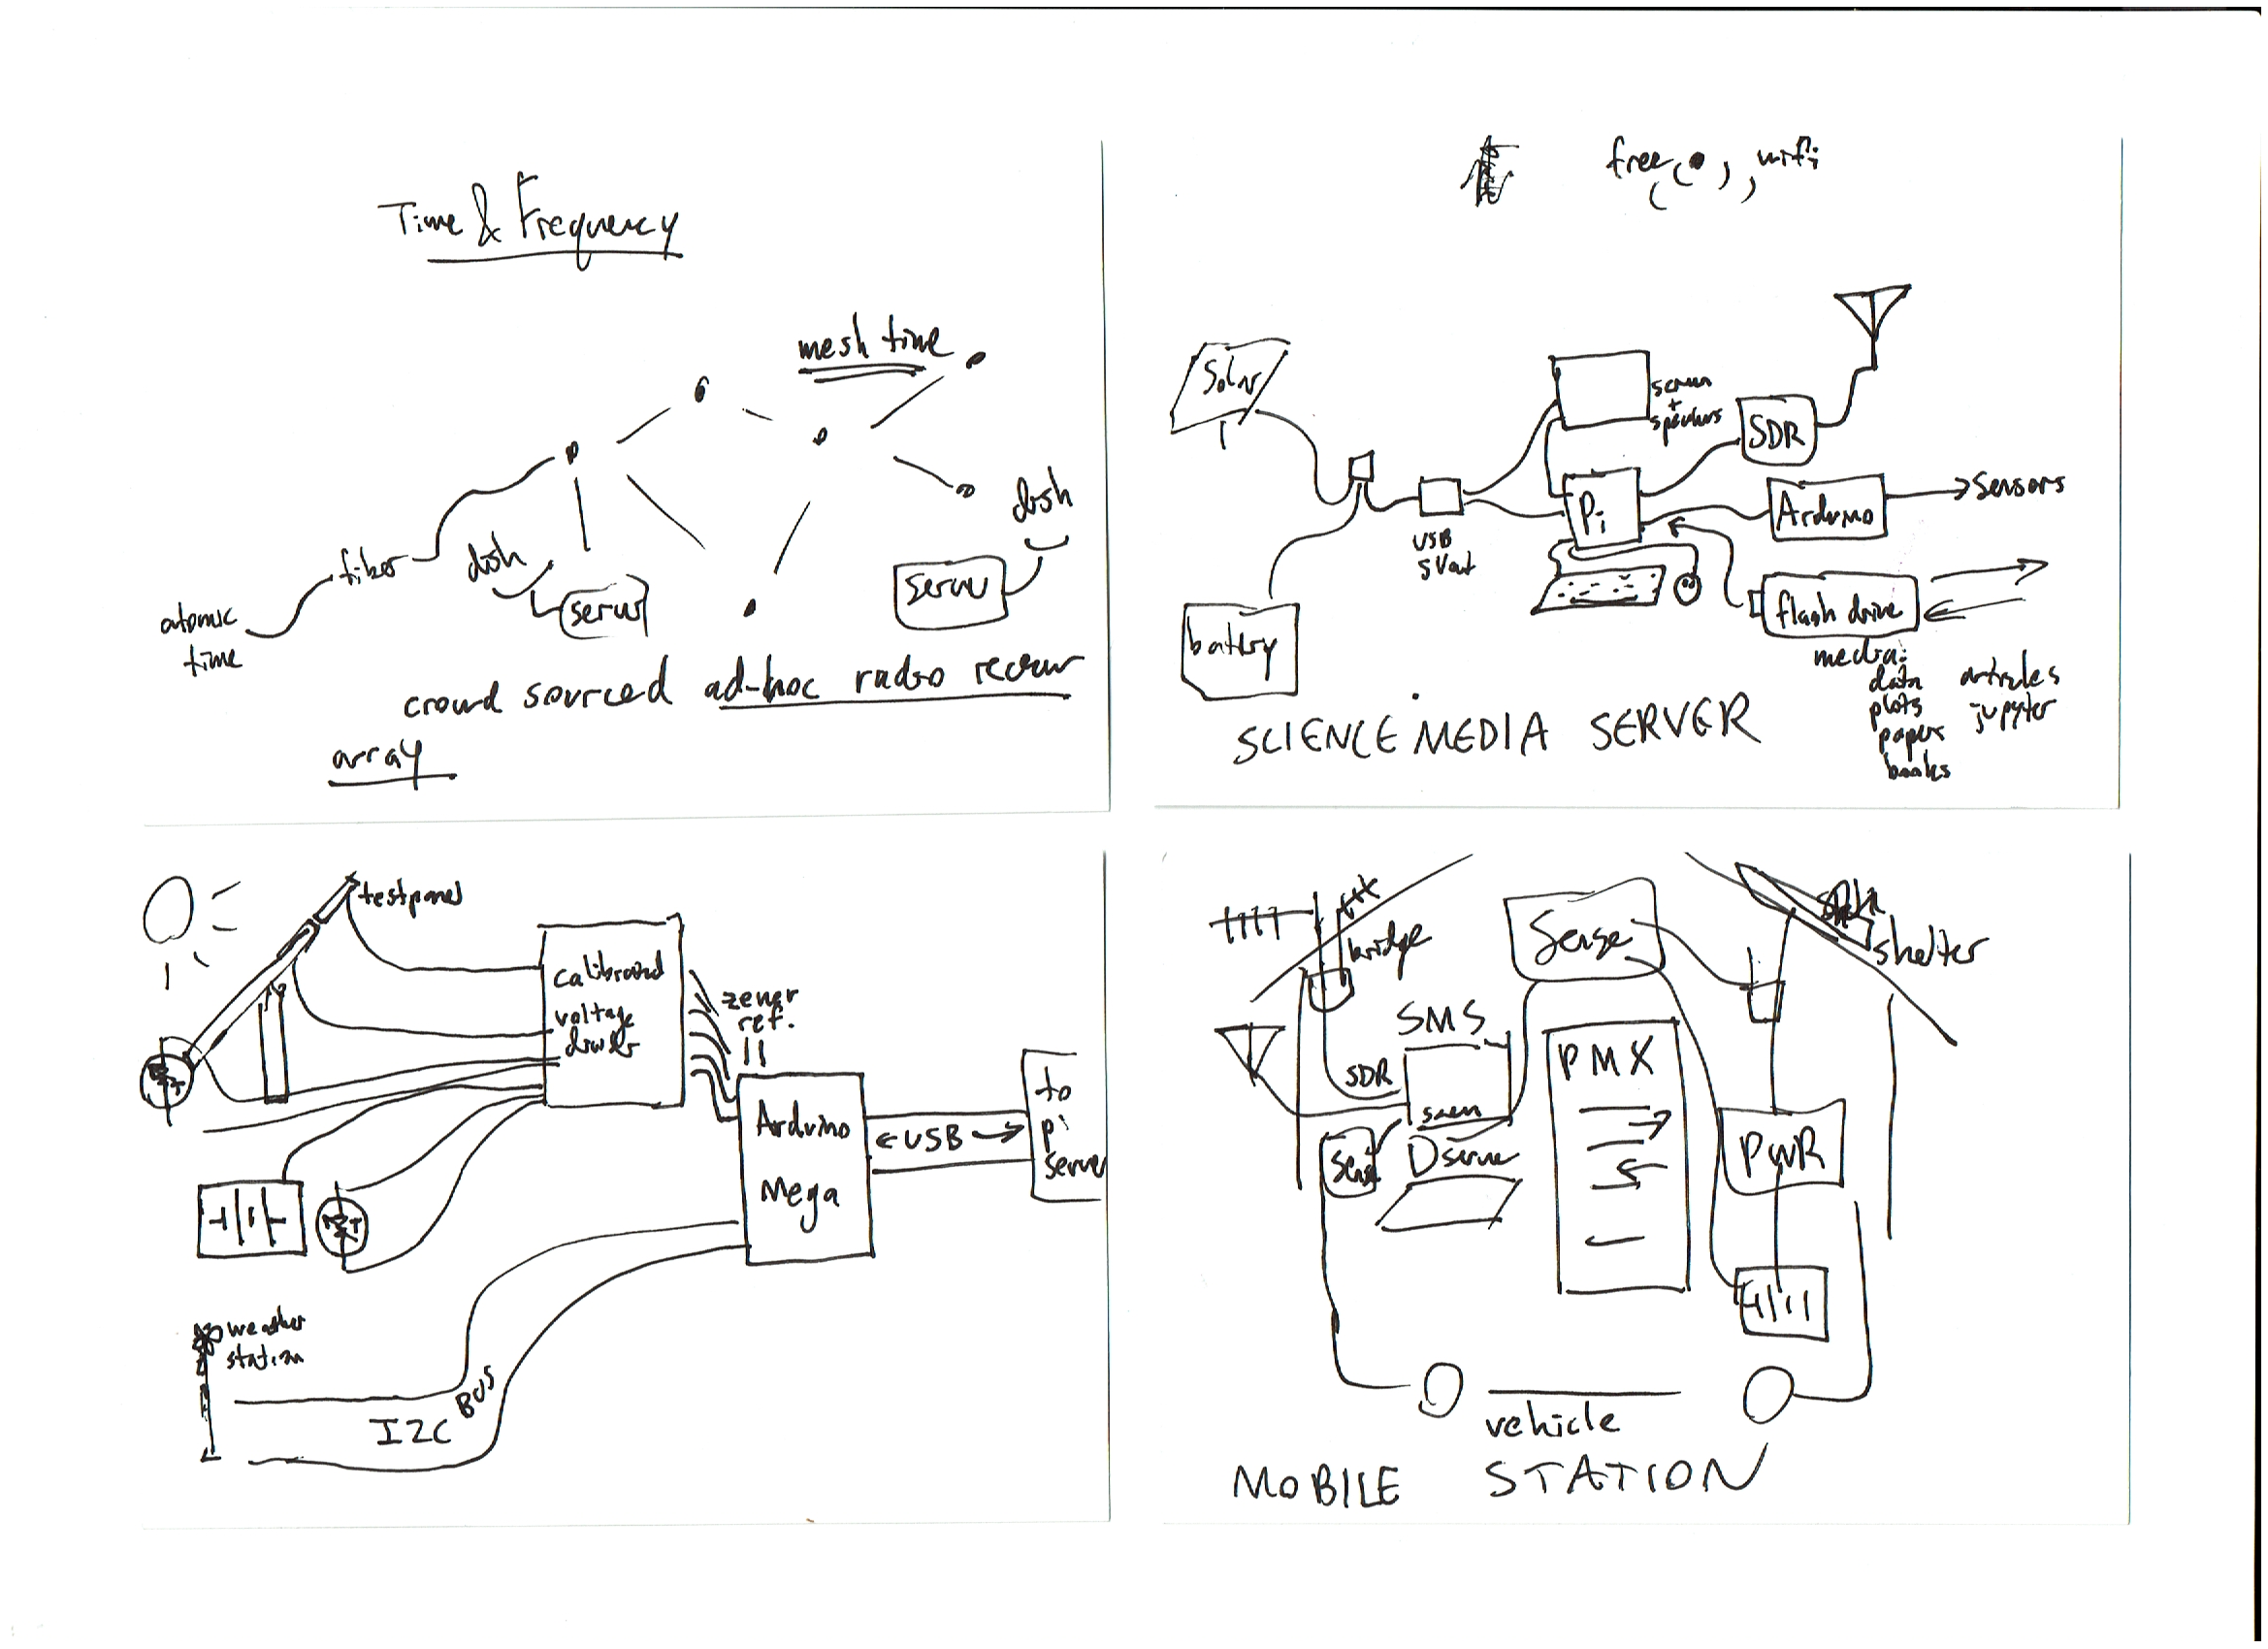 Time & Frequency
mesh time
dish
dish
fiber
server
server
atomic
time
crowd sourced ad-hoc radio receiver
array
free wifi
Solar
screen
+
speakers
SDR
Pi
Arduino
Sensors
USB
5V out
battery
flash drive
media:
data
plots
papers
books
articles
jupyter
SCIENCE MEDIA SERVER
test panel
calibrated
voltage
divider
zener
ref.
Arduino
Mega
USB
to
pi
server
weather
station
I2C BUS
bridge
Sense
shelter
SMS
SDR
screen
PMX
Sense
server
PWR
vehicle
MOBILE STATION